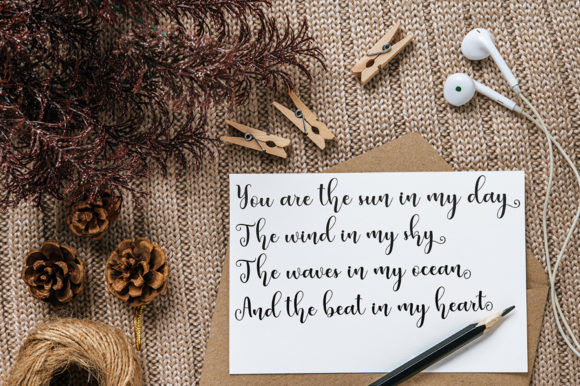 You are the sun in my day
The wind in my sky
The waves in my ocean
And the beat in my heart